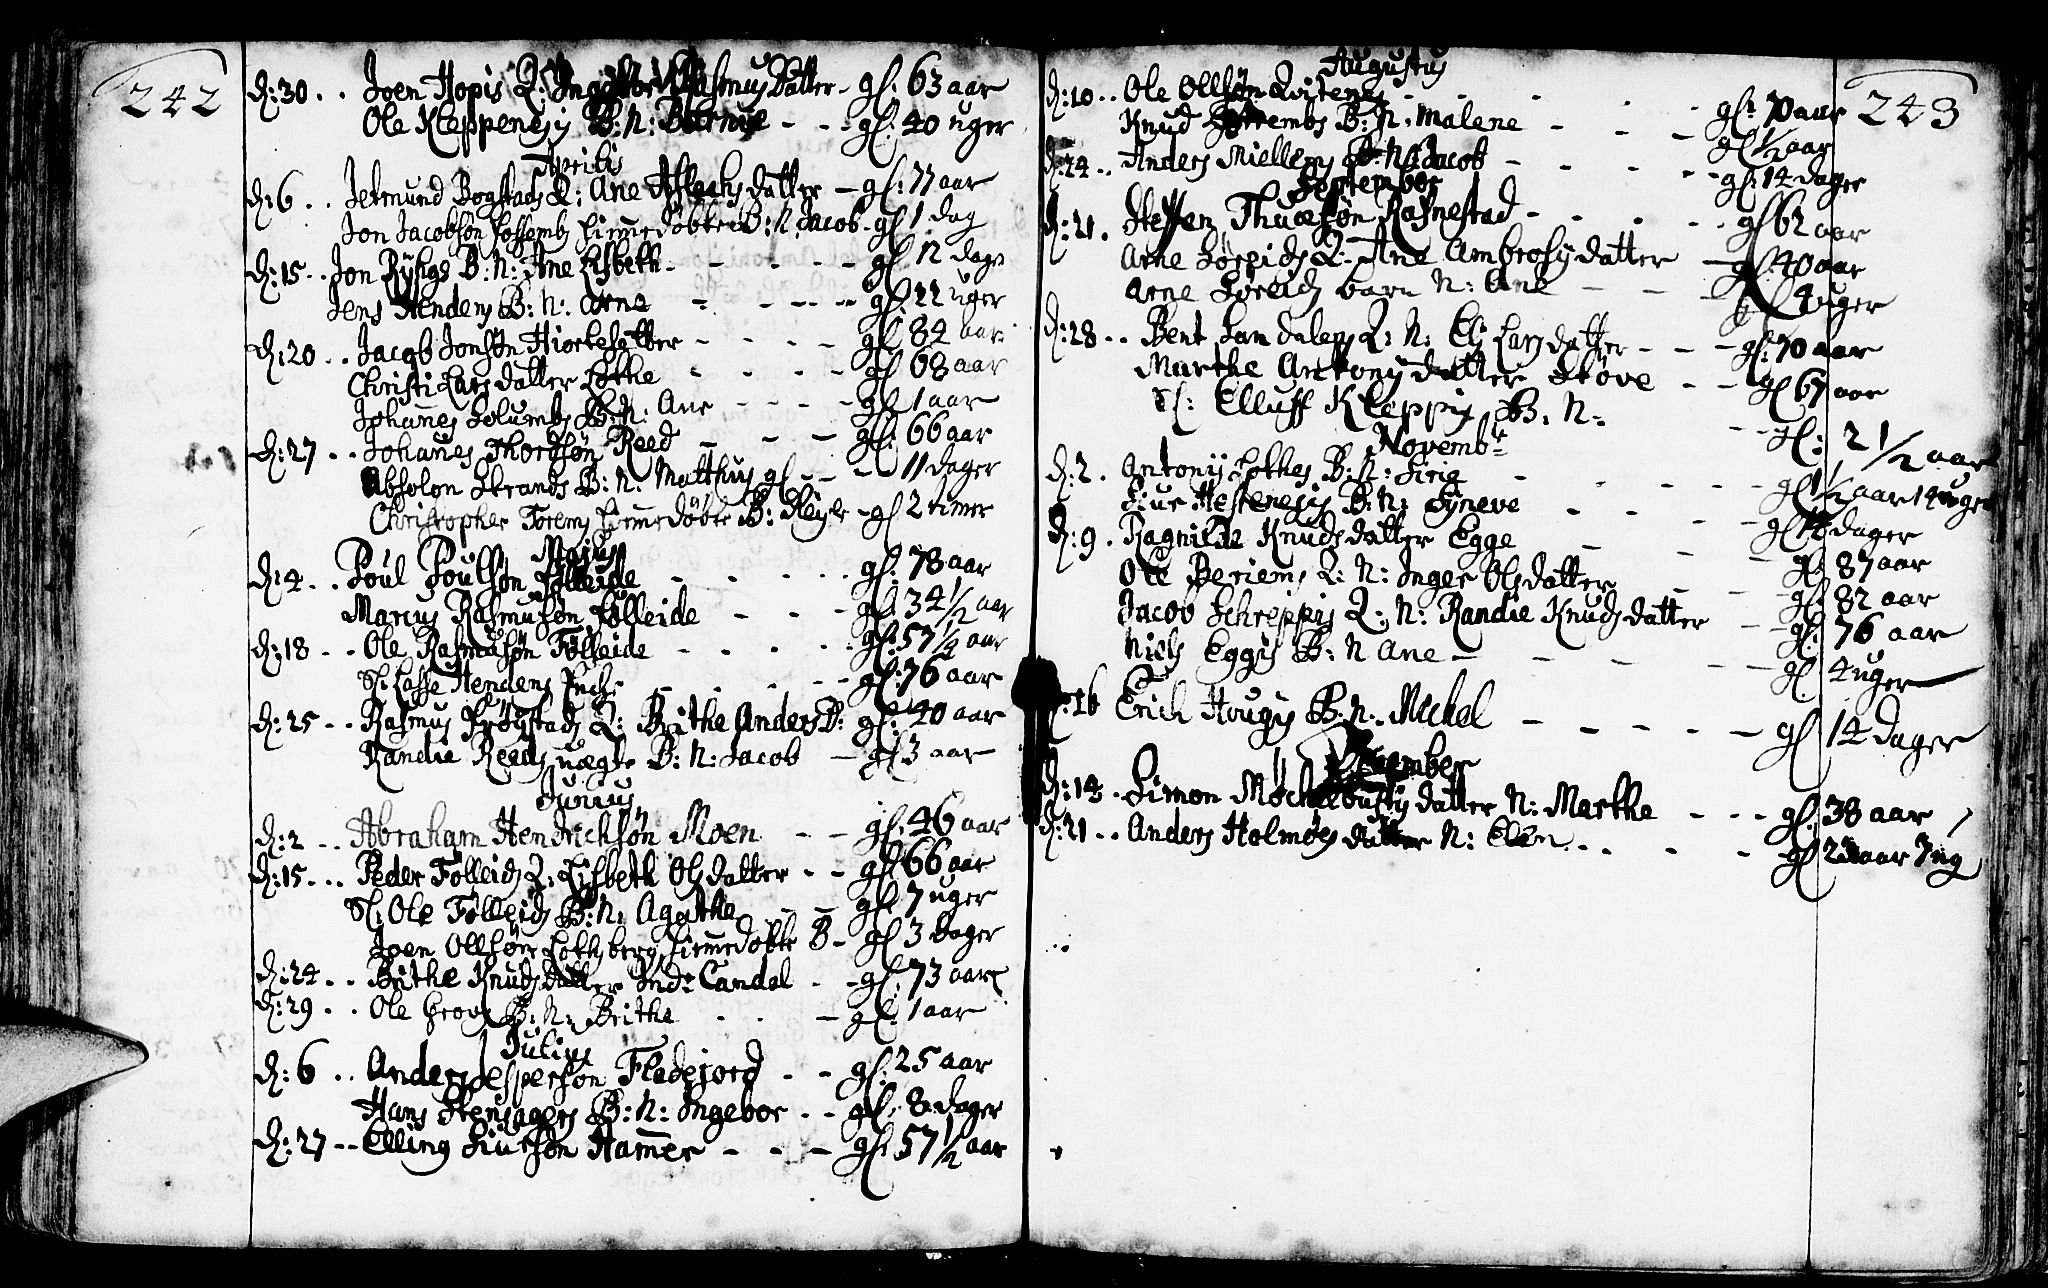 242
d: 30 .. Joen Hopis Q: Ingebor Rasmusdatter - gl: 63 aar
Ole Kleppenesji B: N: - - - gl: 40 uger
Aprilis
d: 6 .. Jetmund Bogstads Q: Ane Aslachsdatter - gl: 77 aar
Jon Jacobsøn hiemedøbte B: N: Jacob - gl 1 dag
d: 15 .. Jon Rÿhgs B: N: Ane Lisbeth - - - - gl 12 dage
Jens Hendens B: N: Arne - - - - gl: 22 uger
d: 20 .. Jacob Jonsøn Hiortesætter - - - - gl 84 aar
Christi Larsdatter Lothe - - - - gl 68 aar
Johanes Solumbs B: N: Ane - - - - gl 1 aar
d: 27 .. Johanes Thordsøn Reed - - - gl: 66 aar
Absolon Strands B: N: Matthis gl - - - 11 dager
Christopher hiemedøbte B: - gl 2 timer
Majus
d: 4 .. Poul Poulsøn Følleide - - - - gl: 78 aar
Marius Rasmusøn Følleide - - - gl: 34 1/2 aar
d: 18 .. Ole Rasmusøn Følleide - - - - gl: 57 1/2 aar
Sl: Lasse Hendens Enche - - - - gl: 76 aar
d: 25 .. Rasmus Frøystads Q: Brithe Anders D: gl: 40 aar
Randie Reeds uægte B: N: Jacob - gl 3 aar
Junius
d: 2 .. Abraham Hendrichsøn Moen - - gl: 46 aar
d: 15 ... Peder Følleids Q: Lisbeth Olsdatter - - gl 66 aar
Sl: Ole Følleids B: N: Agathe - - gl 7 uger
Joen Ollsøn hiemedøbte B - gl 3 dager
d: 24 .. Brithe Knudsdatter Ind: Candal - - gl: 73 aar
d: 29 .. Ole Grov B: N: Brithe - - - gl: 1 aar
Julius
d: 6 .. Anders Jespersøn Fladejord - - gl: 25 aar
Hans Stensagers B: N: Ingebor - - gl. 8 dager
d: 27 -- Elling Siursøn Hamer - - - gl: 57 1/2 aar
243
Augustus
d: 10 .. Ole Ollsøn - - - - gl: 70 aar
Knud B: N: Malene - - - gl 1/2 aar
d: 24 .. Anders Miellems B: N: Jacob - - - gl: 14 dager
September
d: 21 . Steffen Thuesøn Rasnestad - - - - gl 62 aar
Arne Q: Ane Ambrosÿdatter - gl: 40 aar
Arne barn N: Ane - - - gl 4 uger
d: 28 .. Bent Sandalens Q: N: Eli Larsdatter - - - gl: 70 aar
Marthe Antonÿdatter Støve - - gl 67 aar
Sl: Elluff Kleppis B: N: - - gl: 2 1/2 aar
Novembr
d: 2 . Antonÿ Lothes B: N: Sirig - - - - gl 1 1/2 aar 14 uger
Siur Hestenesjs B: N: Syneve - - - - gl 14 dager
d: 9 . Ragnilde Knudsdatter Egge - - - gl: 87 aar
Ole Beriems Q: N: Inger Olsdatter - - - gl: 82 aar
Jacob Schreppis Q: N: Randie Knudsdatter - - gl: 76 aar
Niels Eggis B: N Ane - - - - - gl 4 uger
d: 16 Erich Hougs B: N: Michel - - - - - gl 14 dager
December
d: 14 . Simon datter N: Marthe - - - gl: 38 aar
d: 21 .. Anders Holmøes datter N: Elen . . - - gl aar 7 ug